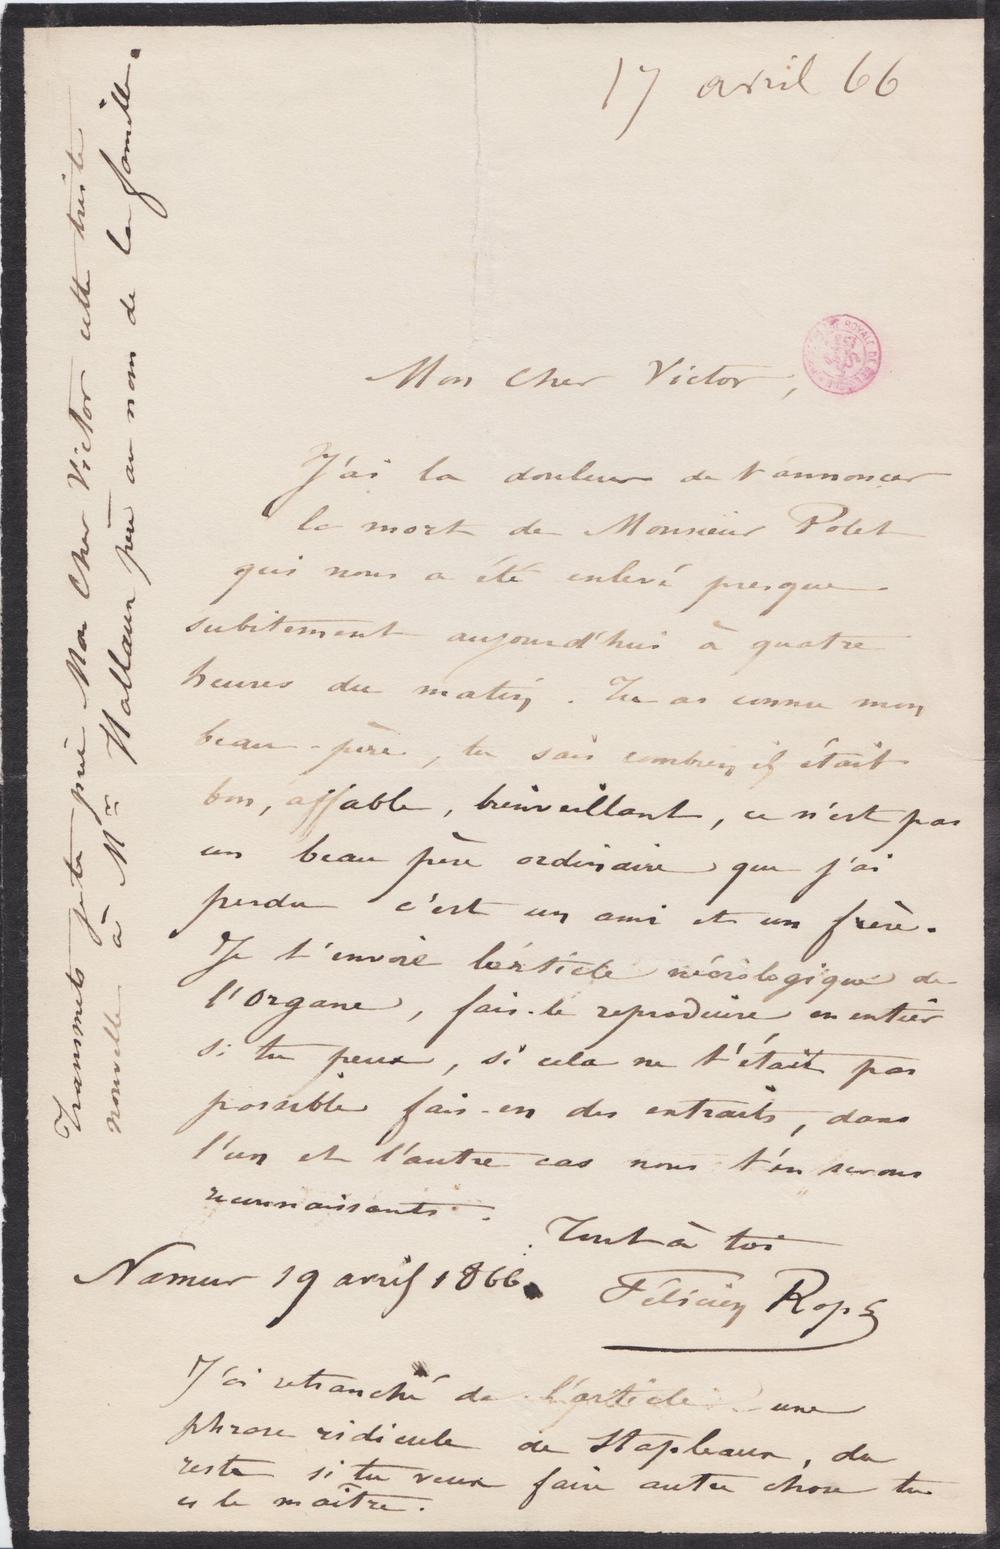 17 avril 66
Mon Cher Victor,
J'ai la douleur de t'annoncer
la mort de Monsieur Polet
qui nous a été enlevé presque
subitement aujourd'hui à quatre
heures du matin. Tu as connu mon
beau-père, tu sais combien il était
bon, affable, bienveillant, ce n'est pas
un beau père ordinaire que j'ai
perdu c'est un ami et un frère.
Je t'envoie l'article nécrologique de
l'Organe, fais-le reproduire en entier
si tu peux, si cela ne t'était pas
possible fais-en des extraits, dans
l'un et l'autre cas nous t'en serons
reconnaissants.
Tout à toi
Namur 19 avril 1866.
Félicien Rops
J'ai retranché de l'article une
phrase ridicule de Stapleaux, du
reste si tu veux faire autre chose tu
es le maître.
Transmets je te prie Mon Cher Victor cette triste
nouvelle à Mr Hallaux père au nom de la famille.